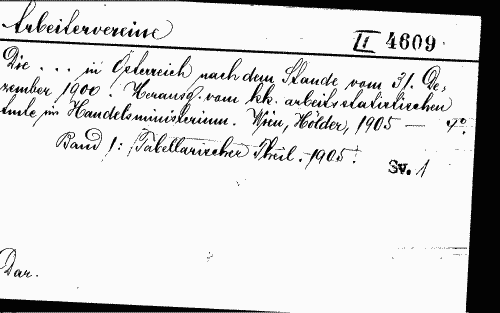 Arbeitervereine
II 4609
Die ... in Österreich nach dem Stande vom 31. De-
zember 1900. Herausg. vom k.k. arbeitsstatistischen
Amte im Handelsministerium. Wien, Hölder, 1905 — 4°.
Band 1: Tabellarischer Theil. 1905.
Sv. 1
Dar.